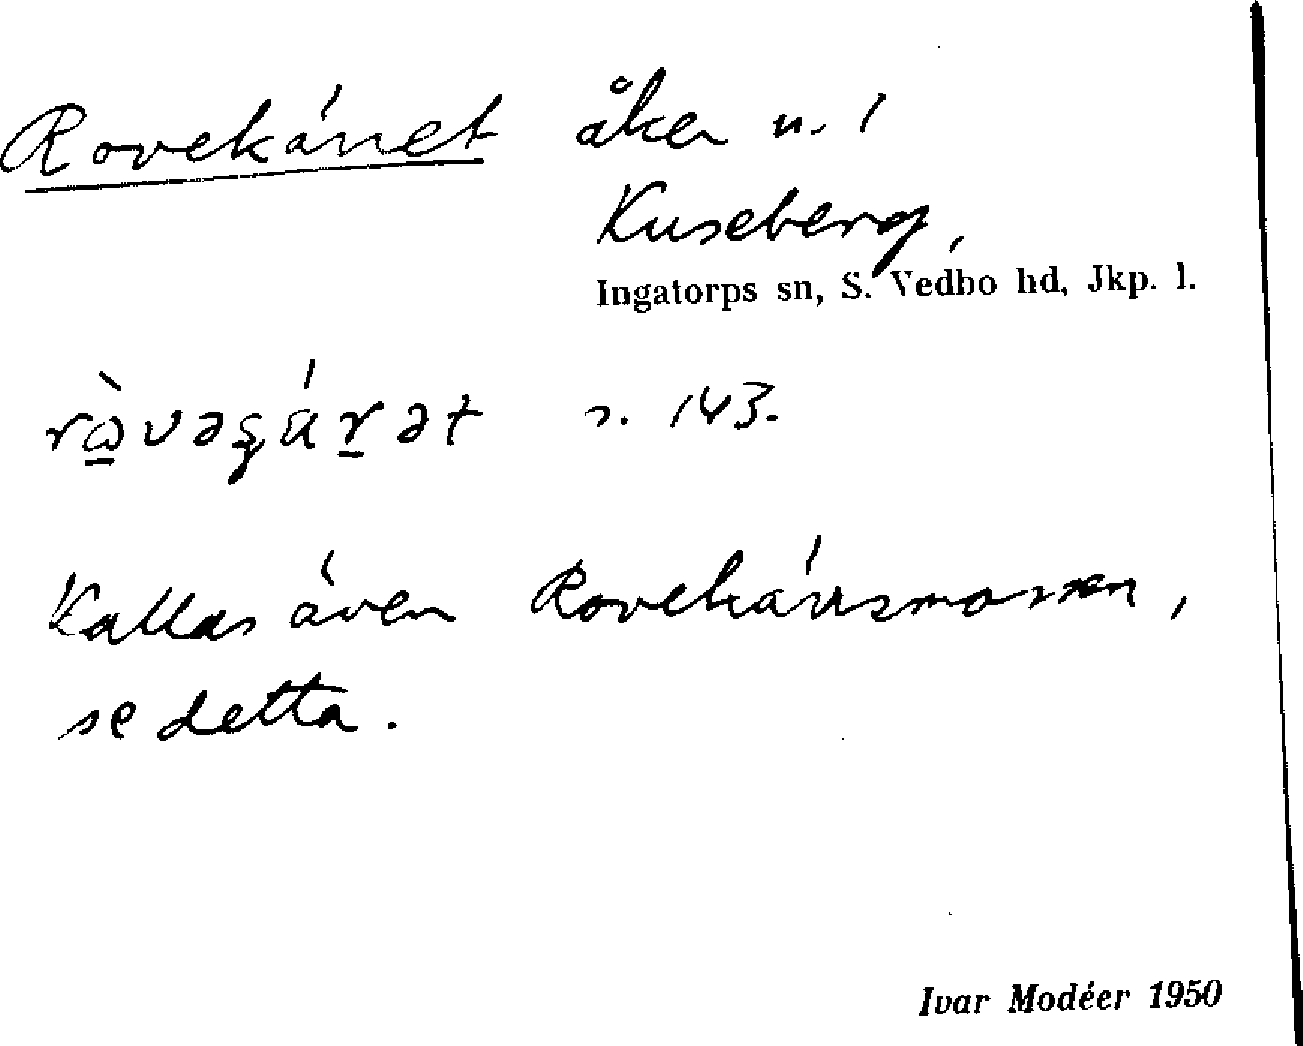 Rovekärret åker
Kuseberg,
Ingatorps sn, S. Vedbo hd, Jkp. l.
s. 143.
Kallas även Rovekärrsmossen,
se detta.
Ivar Modéer 1950